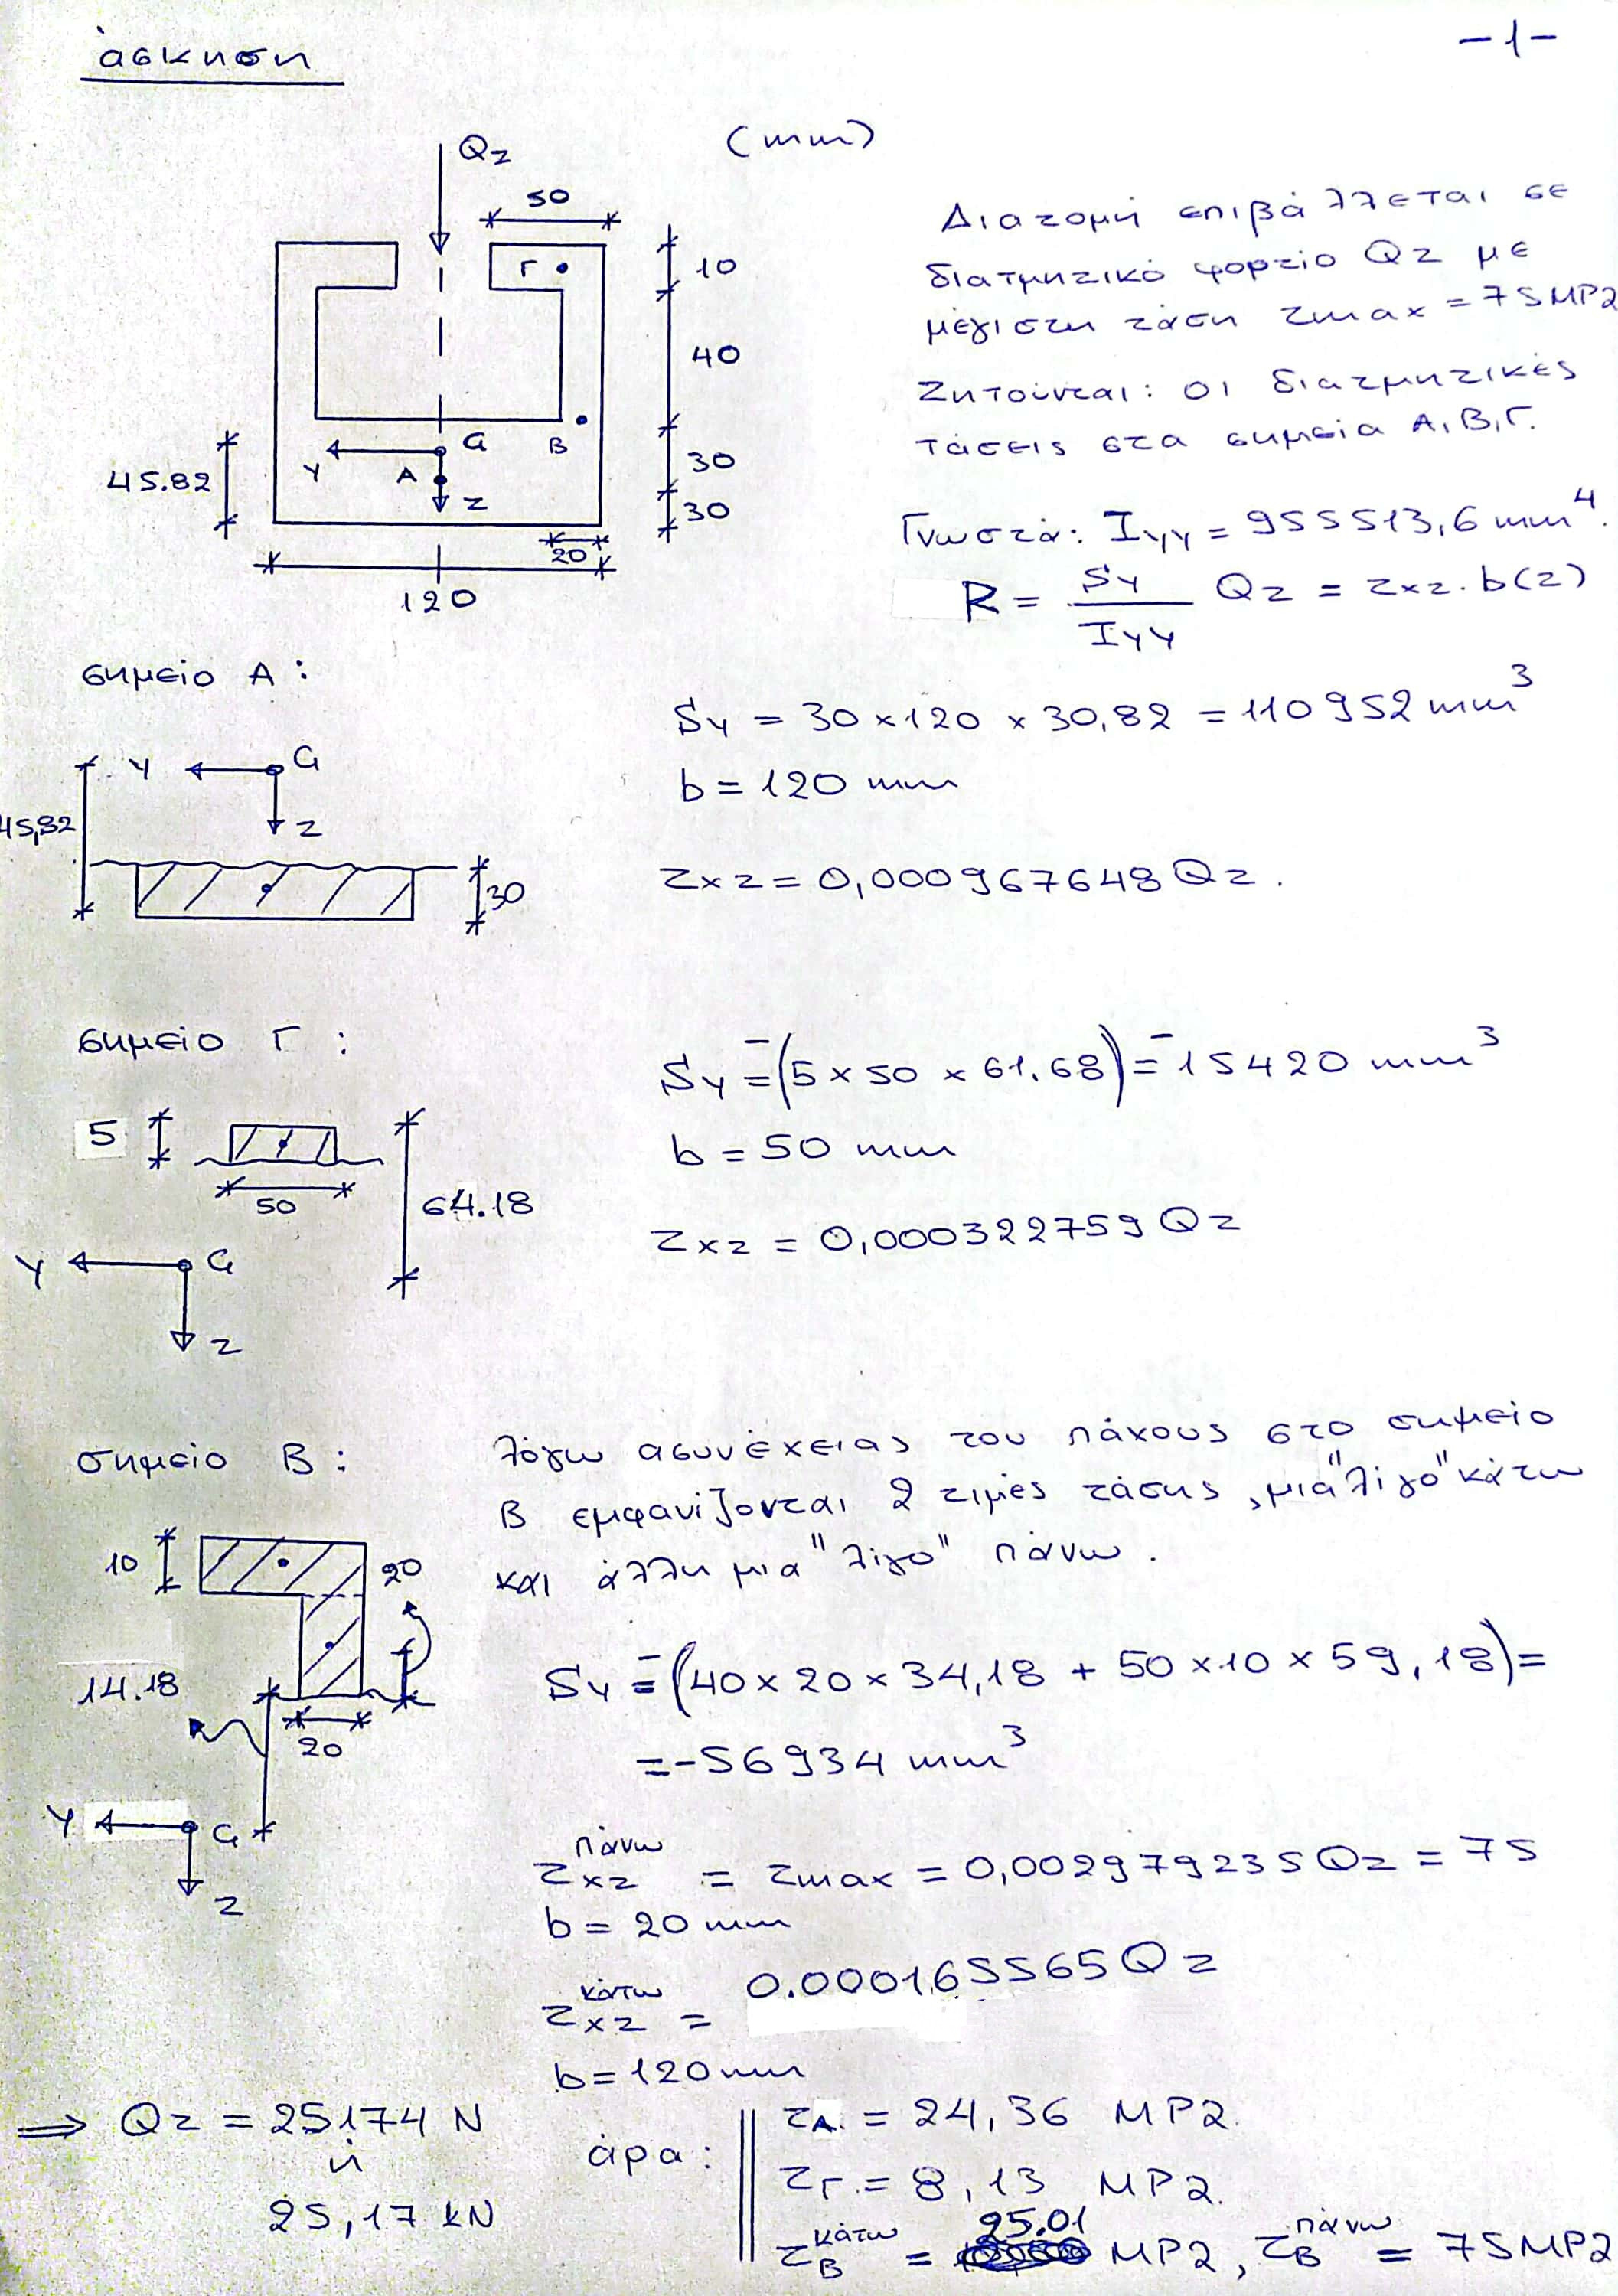 άσκηση
-1-
Qz
(mm)
50
Γ
10
40
30
30
G
B
Y
A
z
45.82
20
120
Διατομή επιβάλλεται σε
διατμητικό φορτίο Qz με
μέγιστη τάση τmax = 75MPa
Ζητούνται: οι διατμητικές
τάσεις στα σημεία Α, Β, Γ.
Γνωστά: Iyy = 955513,6 mm⁴.
R = Sy/Iyy Qz = τxz. b(z)
σημείο Α:
Sy = 30 × 120 × 30,82 = 110952 mm³
b = 120 mm
τxz = 0,000967648 Qz.
Y
G
z
45,82
30
σημείο Γ:
Sy = -(5 × 50 × 61.68) = -15420 mm³
b = 50 mm
τxz = 0,000322759 Qz
5
50
64.18
Y
G
z
σημείο Β:
λόγω ασυνέχειας του πάχους στο σημείο
Β εμφανίζονται 2 τιμές τάσης, μια "λίγο" κάτω
και άλλη μια "λίγο" πάνω.
10
20
14.18
20
Y
G
z
Sy = -(40 × 20 × 34,18 + 50 × 10 × 59,18) =
= -56934 mm³
τxz πάνω = τmax = 0,002979235 Qz = 75
b = 20 mm
τxz κάτω = 0.000165565 Qz
b = 120 mm
⟹ Qz = 25174 N
ή
25,17 kN
άρα:
τA = 24,36 MPa.
τΓ = 8,13 MPa.
τB κάτω = 25.01 MPa, τB πάνω = 75MPa